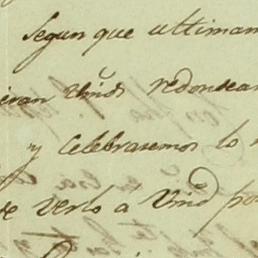 Segun que ultimam
eran Vmds redondear
y celebraremos lo
de verlo a Vmd po